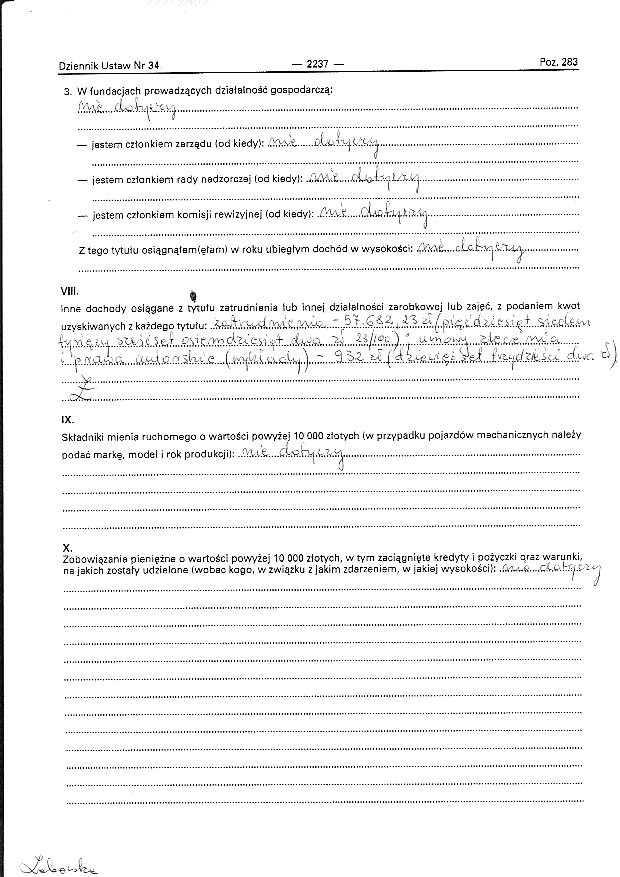 Dziennik Ustaw Nr 34 — 2237 — Poz. 283
3. W fundacjach prowadzących działalność gospodarczą:
nie dotyczy
— jestem członkiem zarządu (od kiedy): nie dotyczy
— jestem członkiem rady nadzorczej (od kiedy): nie dotyczy
— jestem członkiem komisji rewizyjnej (od kiedy): nie dotyczy
Z tego tytułu osiągnąłem(ęłam) w roku ubiegłym dochód w wysokości: nie dotyczy
VIII.
Inne dochody osiągane z tytułu zatrudnienia lub innej działalności zarobkowej lub zajęć, z podaniem kwot
uzyskiwanych z każdego tytułu: zatrudnienie - 57.682,23 zł (pięćdziesiąt siedem
tysięcy sześćset osiemdziesiąt dwa zł 23/100); umowy zlecenia
i prawa autorskie (wykłady) - 932 zł (dziewięćset trzydzieści dwa zł)
IX.
Składniki mienia ruchomego o wartości powyżej 10 000 złotych (w przypadku pojazdów mechanicznych należy
podać markę, model i rok produkcji): nie dotyczy
X.
Zobowiązania pieniężne o wartości powyżej 10 000 złotych, w tym zaciągnięte kredyty i pożyczki oraz warunki,
na jakich zostały udzielone (wobec kogo, w związku z jakim zdarzeniem, w jakiej wysokości): nie dotyczy